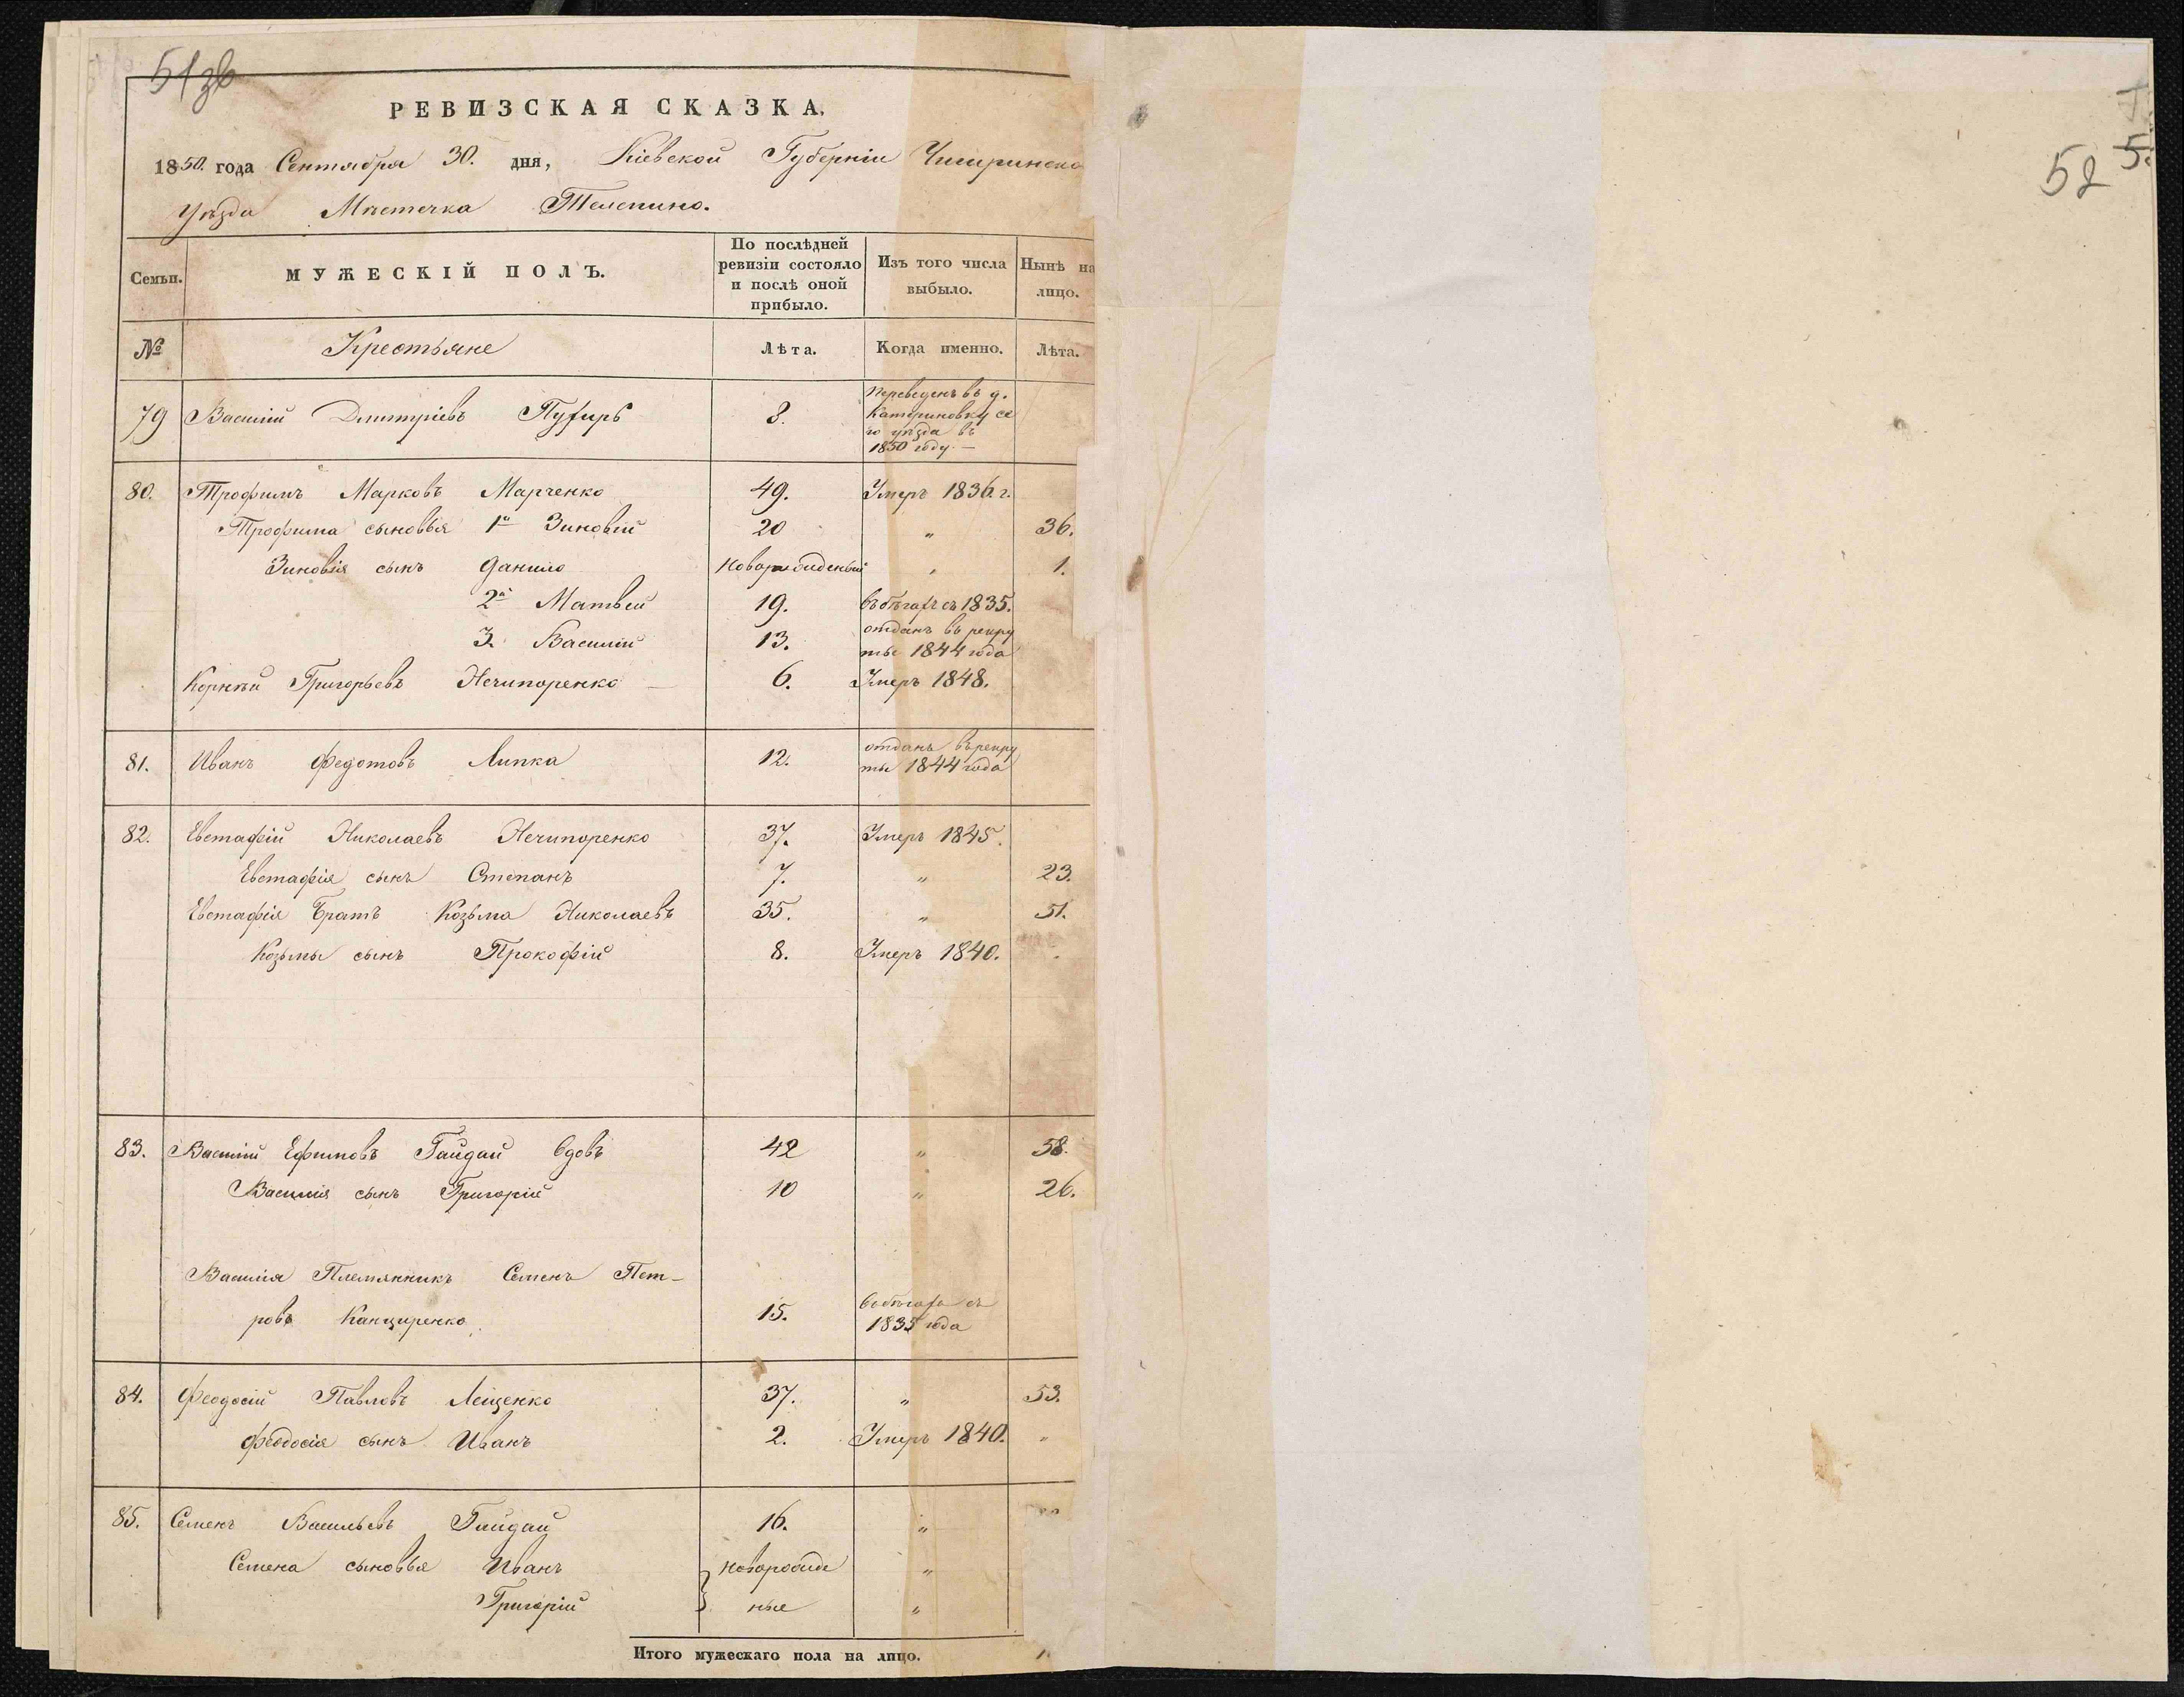 51зв
РЕВИЗСКАЯ СКАЗКА.
1850. года Сентября 30. дня, Кіевской Губерніи Чигиринско
Уѣзда Мѣстечка Телепино.
Семьи. МУЖЕСКІЙ ПОЛЪ. По послѣдней ревизіи состояло и послѣ оной прибыло. Изъ того числа выбыло. Нынѣ на лицо.
№ Крестьяне Лѣта. Когда именно. Лѣта.
79 Василій Дмитріевъ Пузирь 8. Переведенъ въ д.
Катериновку се
го уѣзда въ
1850 году —
80. Трофимъ Марковъ Марченко 49. Умеръ 1836 г.
Трофима сыновья 1й Зиновій 20 „ 36.
Зиновія сынъ Данило новорожденый „ 1.
2й Матвей 19. въ бѣгахъ съ 1835.
3. Василій 13. отданъ въ рекру
ты 1844 года
Корней Григорьевъ Нечипоренко — 6. Умеръ 1848.
81. Иванъ Федотовъ Липка 12. отданъ въ рекру
ты 1844 года
82. Евстафій Николаевъ Нечипоренко 37. Умеръ 1845.
Евстафія сынъ Степанъ 7. „ 23.
Евстафія Братъ Козьма Николаевъ 35. „ 51.
Козьмы сынъ Прокофій 8. Умеръ 1840.
83. Василій Ефимовъ Гайдай вдовъ 42 „ 58.
Василія сынъ Григорій 10 „ 26.
Василія Племянникъ Семенъ Пет-
ровъ Канциренко 15. въ бѣгахъ съ
1835 года
84. Феодосій Павловъ Лещенко 37. „ 53.
Феодосія сынъ Иванъ 2. Умеръ 1840. „
85. Семенъ Васильевъ Гайдай 16. „
Семена сыновья Иванъ новорожде „
Григорій ные „
Итого мужескаго пола на лицо.
52